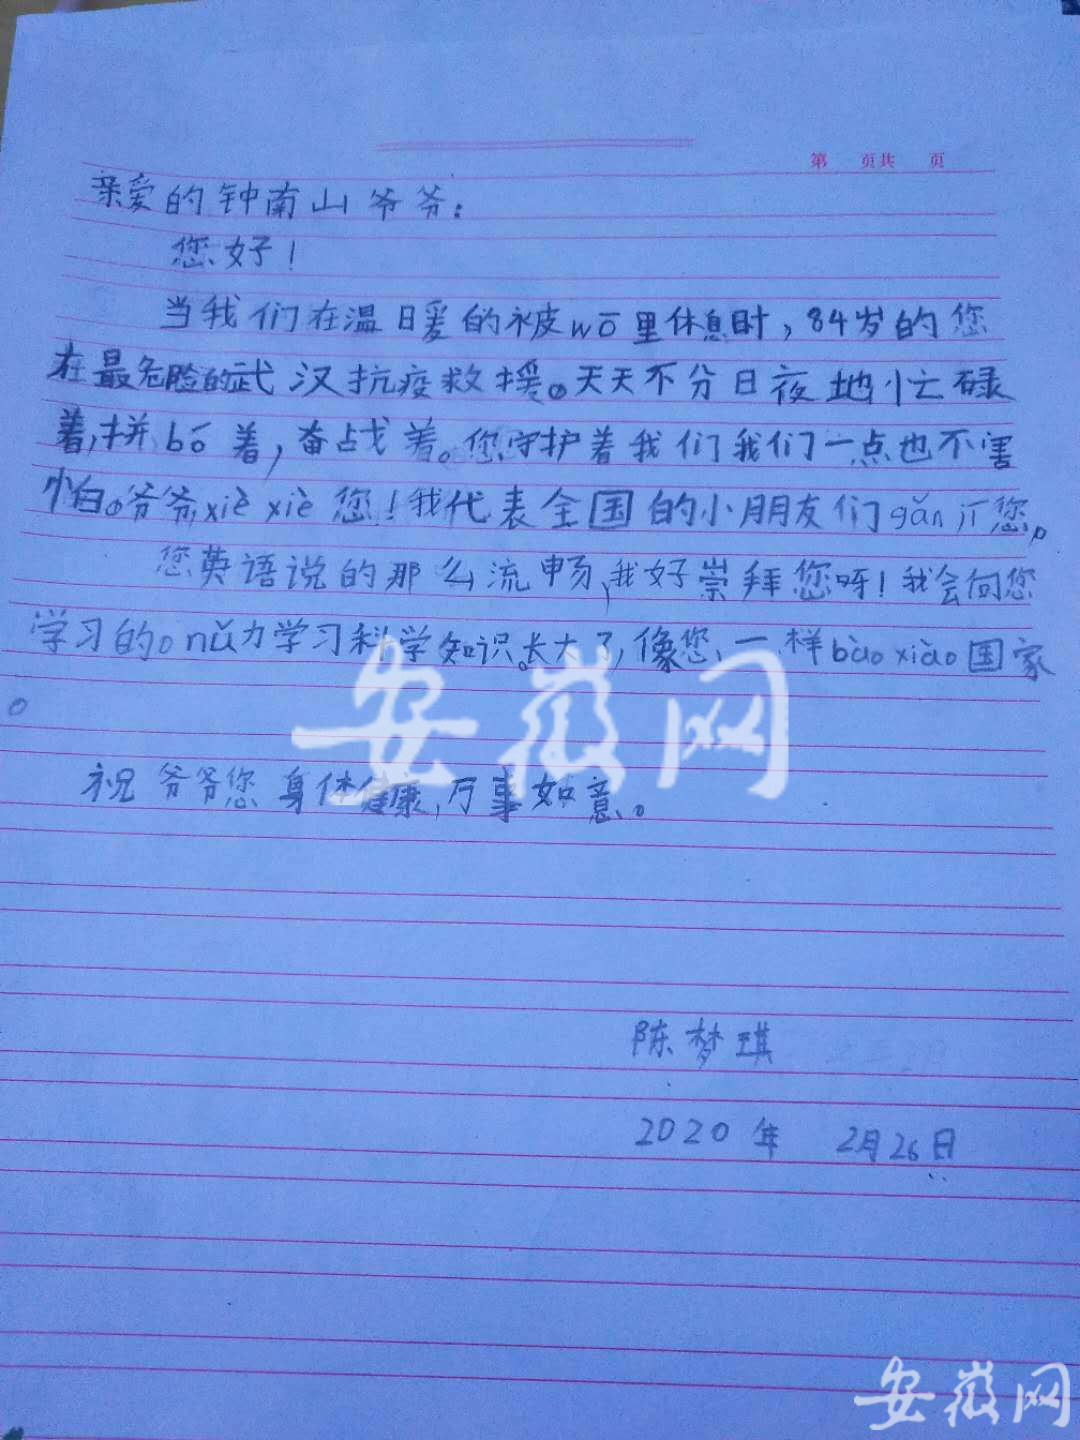 第 页共 页
亲爱的钟南山爷爷：
您好！
当我们在温暖的被wō里休息时，84岁的您
在最危险的武汉抗疫救援。天天不分日夜地忙碌
着，拼bō着，奋战着。您守护着我们我们一点也不害
怕。爷爷，xiè xiè您！我代表全国的小朋友们gǎn jī您。
您英语说的那么流畅，我好崇拜您呀！我会向您
学习的。nǔ力学习科学知识。长大了，像您一样bào xiào国家
。
安徽网
祝爷爷您身体健康，万事如意。
陈梦琪
2020年 2月26日
安徽网